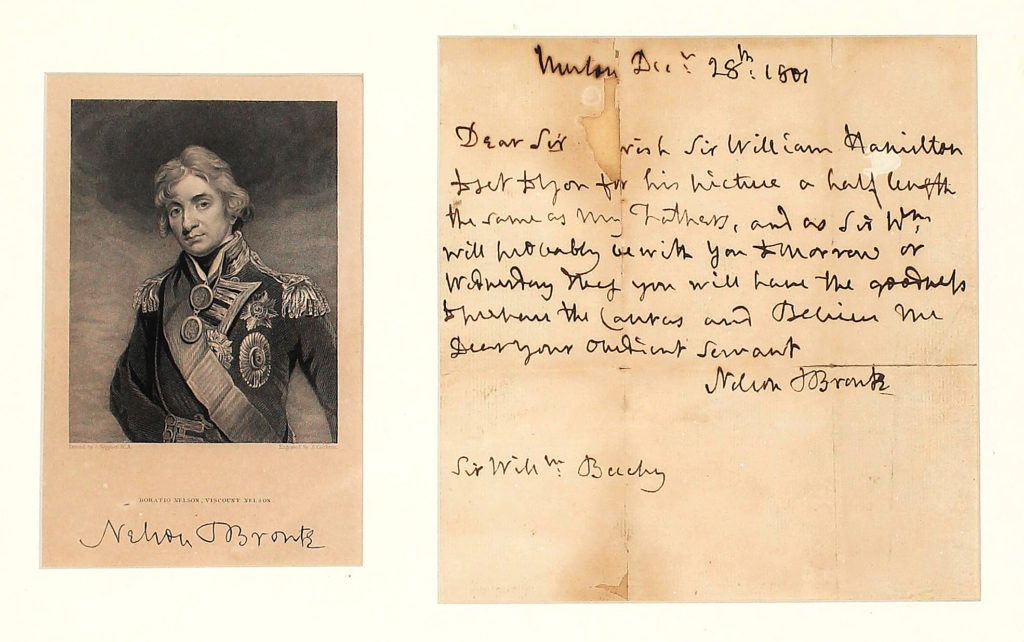 HORATIO NELSON, VISCOUNT NELSON
Nelson & Bronte
Merton Decr. 28th: 1801
Dear Sir wish Sir William Hamilton
to set to you for his picture a half length
the same as My Fathers, and as Sir Wm:
will probably be with you tomorrow or
Wednesday you will have the goodness
to prepare the Canvas and Believe Me
Dear your obedient Servant
Nelson & Bronte
Sir Willm Beechy